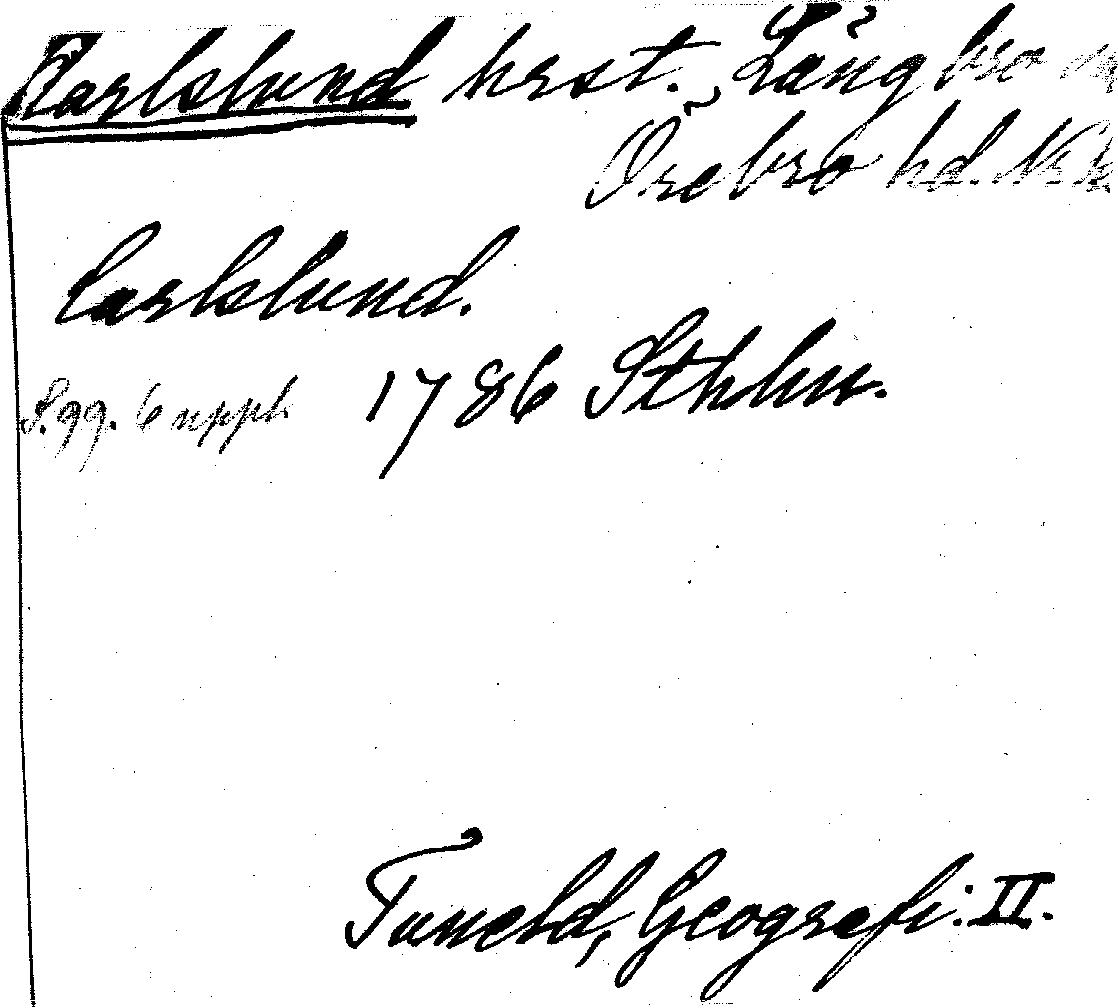 Karlslund hrst. Långbro
Örebro hd. Nke
Carlslund.
S. 99. 6 uppl. 1786 Sthlm.
Tuneld, Geografi. II.